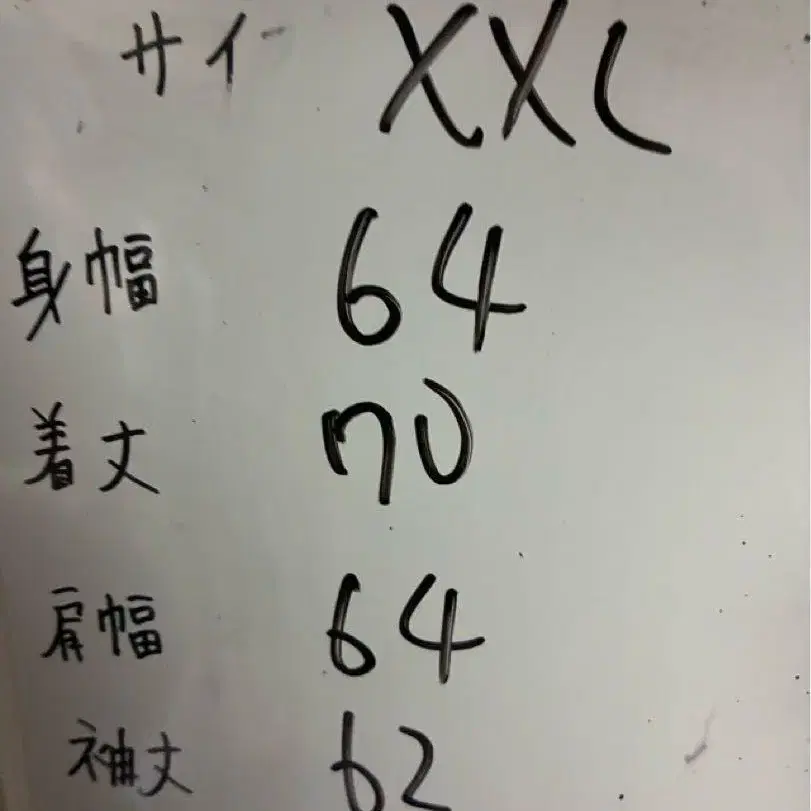 サイ XXL
身幅 64
着丈 70
肩幅 64
袖丈 62